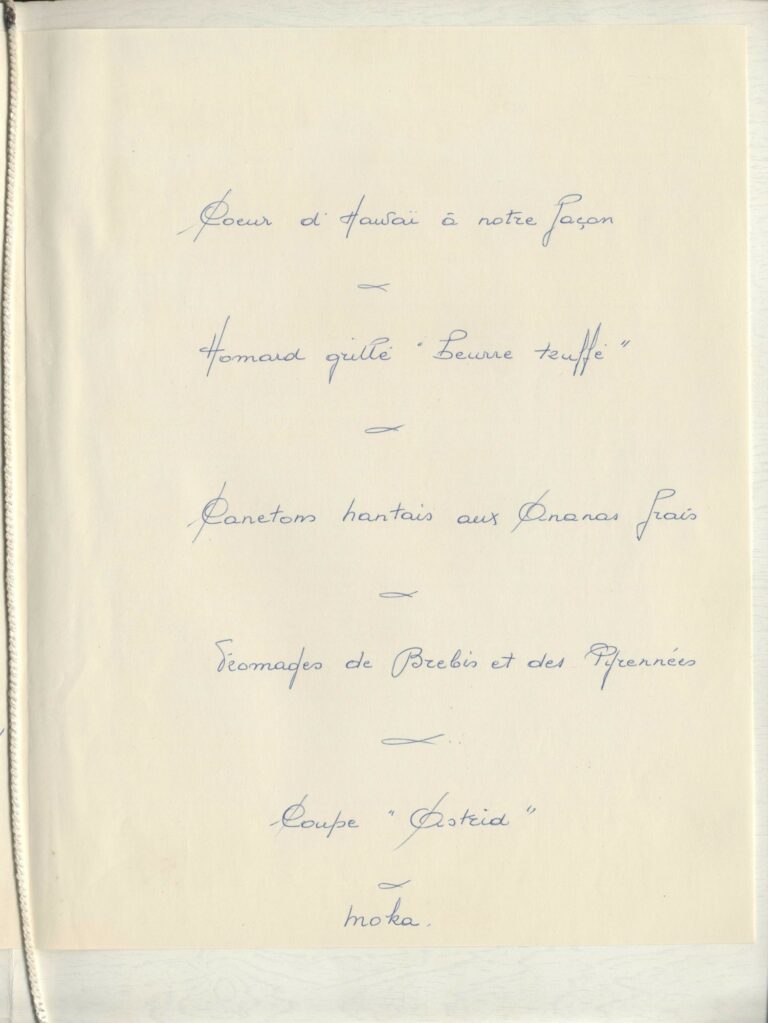 Coeur d'Hawaï à notre façon
Homard grillé "beurre truffé"
Canetons nantais aux Ananas frais
Fromages de Brebis et des Pyrennées
Coupe "Astrid"
moka.